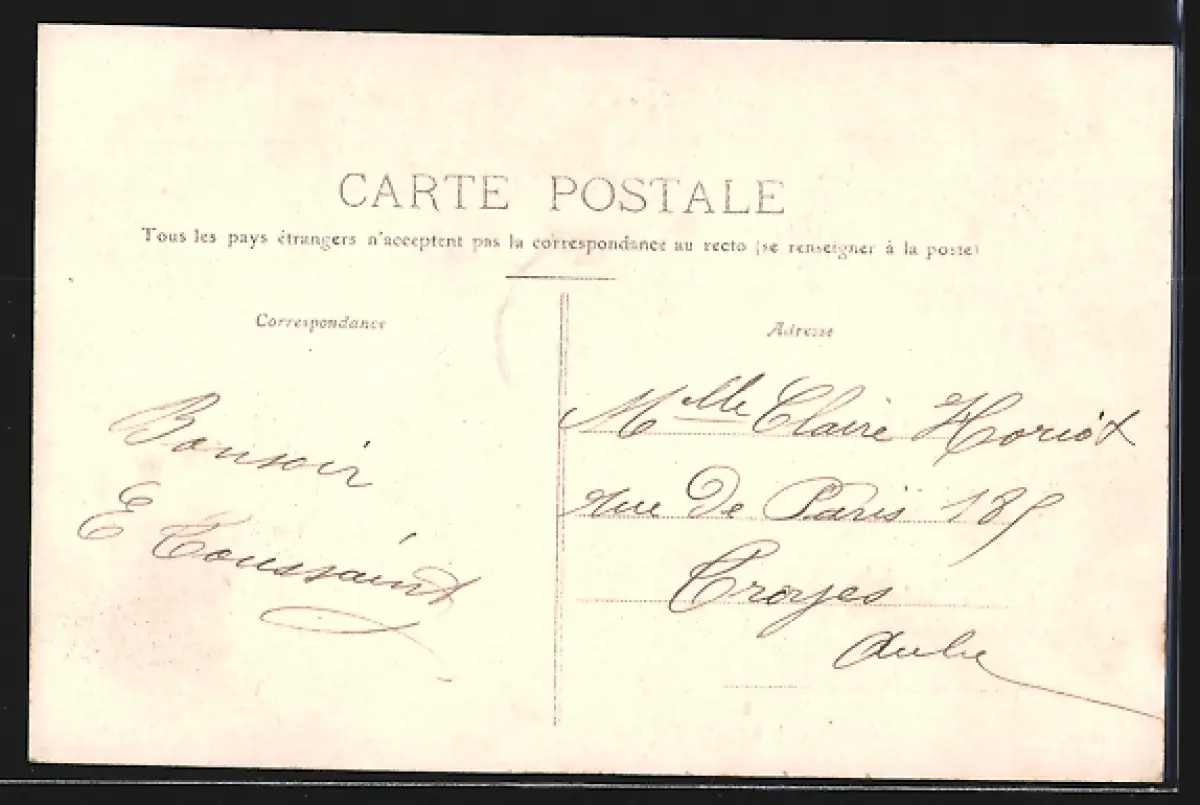 CARTE POSTALE
Tous les pays étrangers n'acceptent pas la correspondance au recto (se renseigner à la poste)
Correspondance
Bonsoir
E Toussaint
Adresse
Mlle Claire Horiot
rue de Paris 185
Troyes
Aube